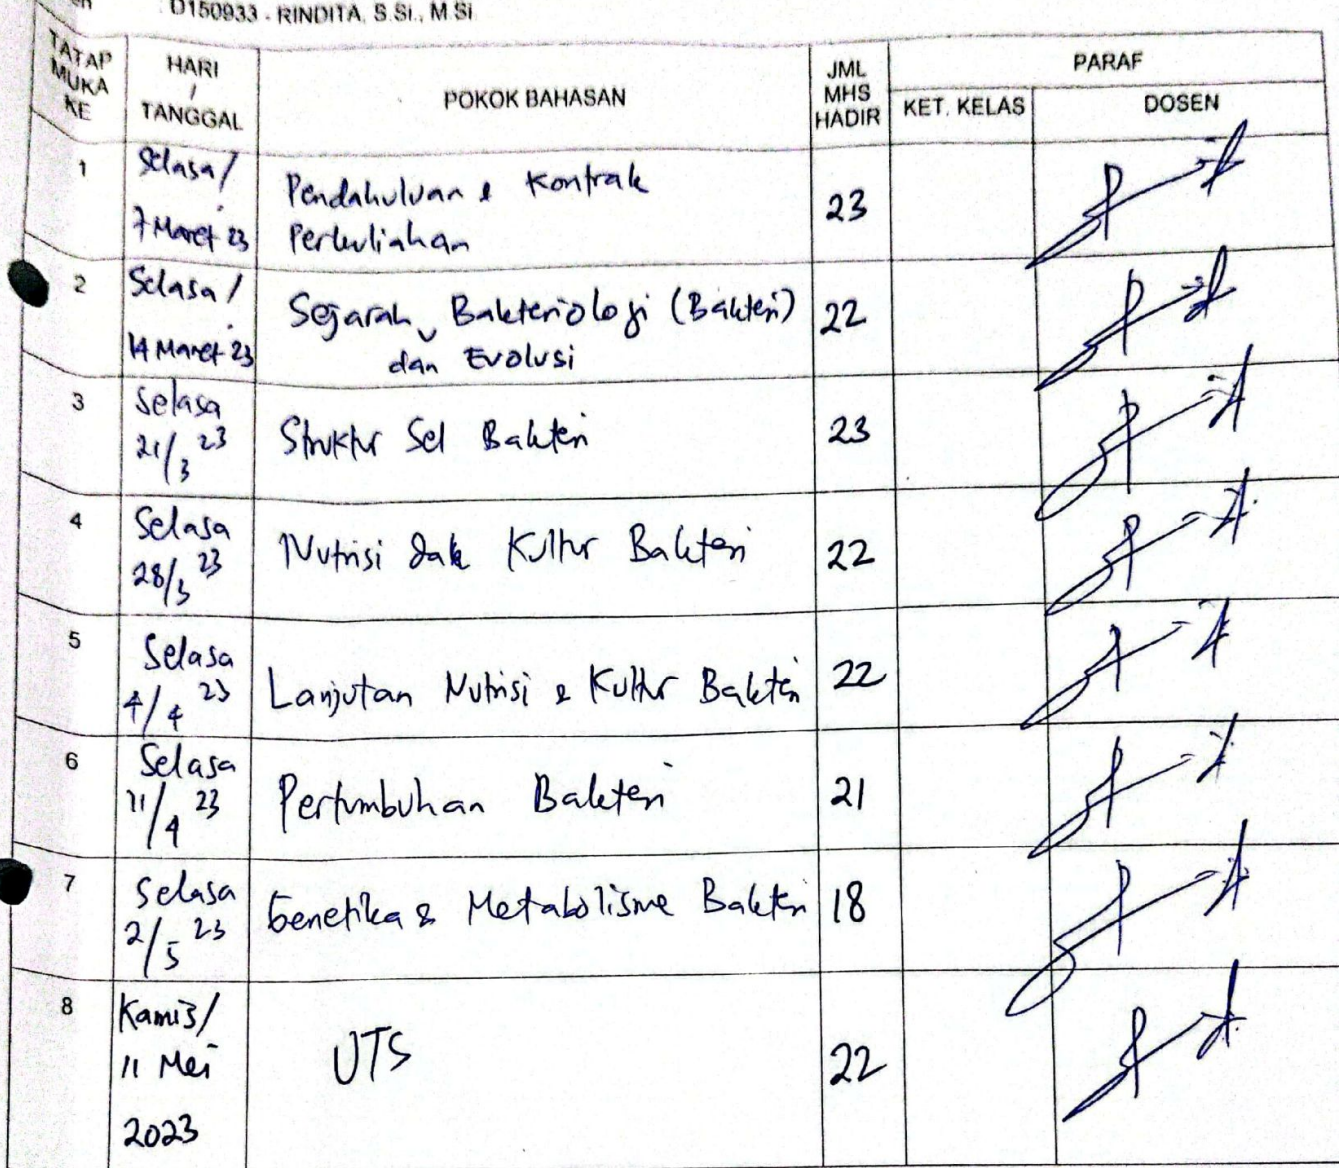 D150933 - RINDITA, S.Si., M.Si
TATAP MUKA KE
HARI / TANGGAL
POKOK BAHASAN
JML MHS HADIR
PARAF
KET. KELAS
DOSEN
1
Selasa /
7 Maret 23
Pendahuluan & Kontrak
Perkuliahan
23
2
Selasa /
14 Maret 23
Sejarah Bakteriologi (Bakteri)
dan Evolusi
22
3
Selasa
21/3 23
Struktur Sel Bakteri
23
4
Selasa
28/3 23
Nutrisi dak Kultur Bakteri
22
5
Selasa
4/4 23
Lanjutan Nutrisi & Kultur Bakteri
22
6
Selasa
11/4 23
Pertumbuhan Bakteri
21
7
Selasa
2/5 23
Genetika & Metabolisme Bakteri
18
8
Kamis/
11 Mei
2023
UTS
22